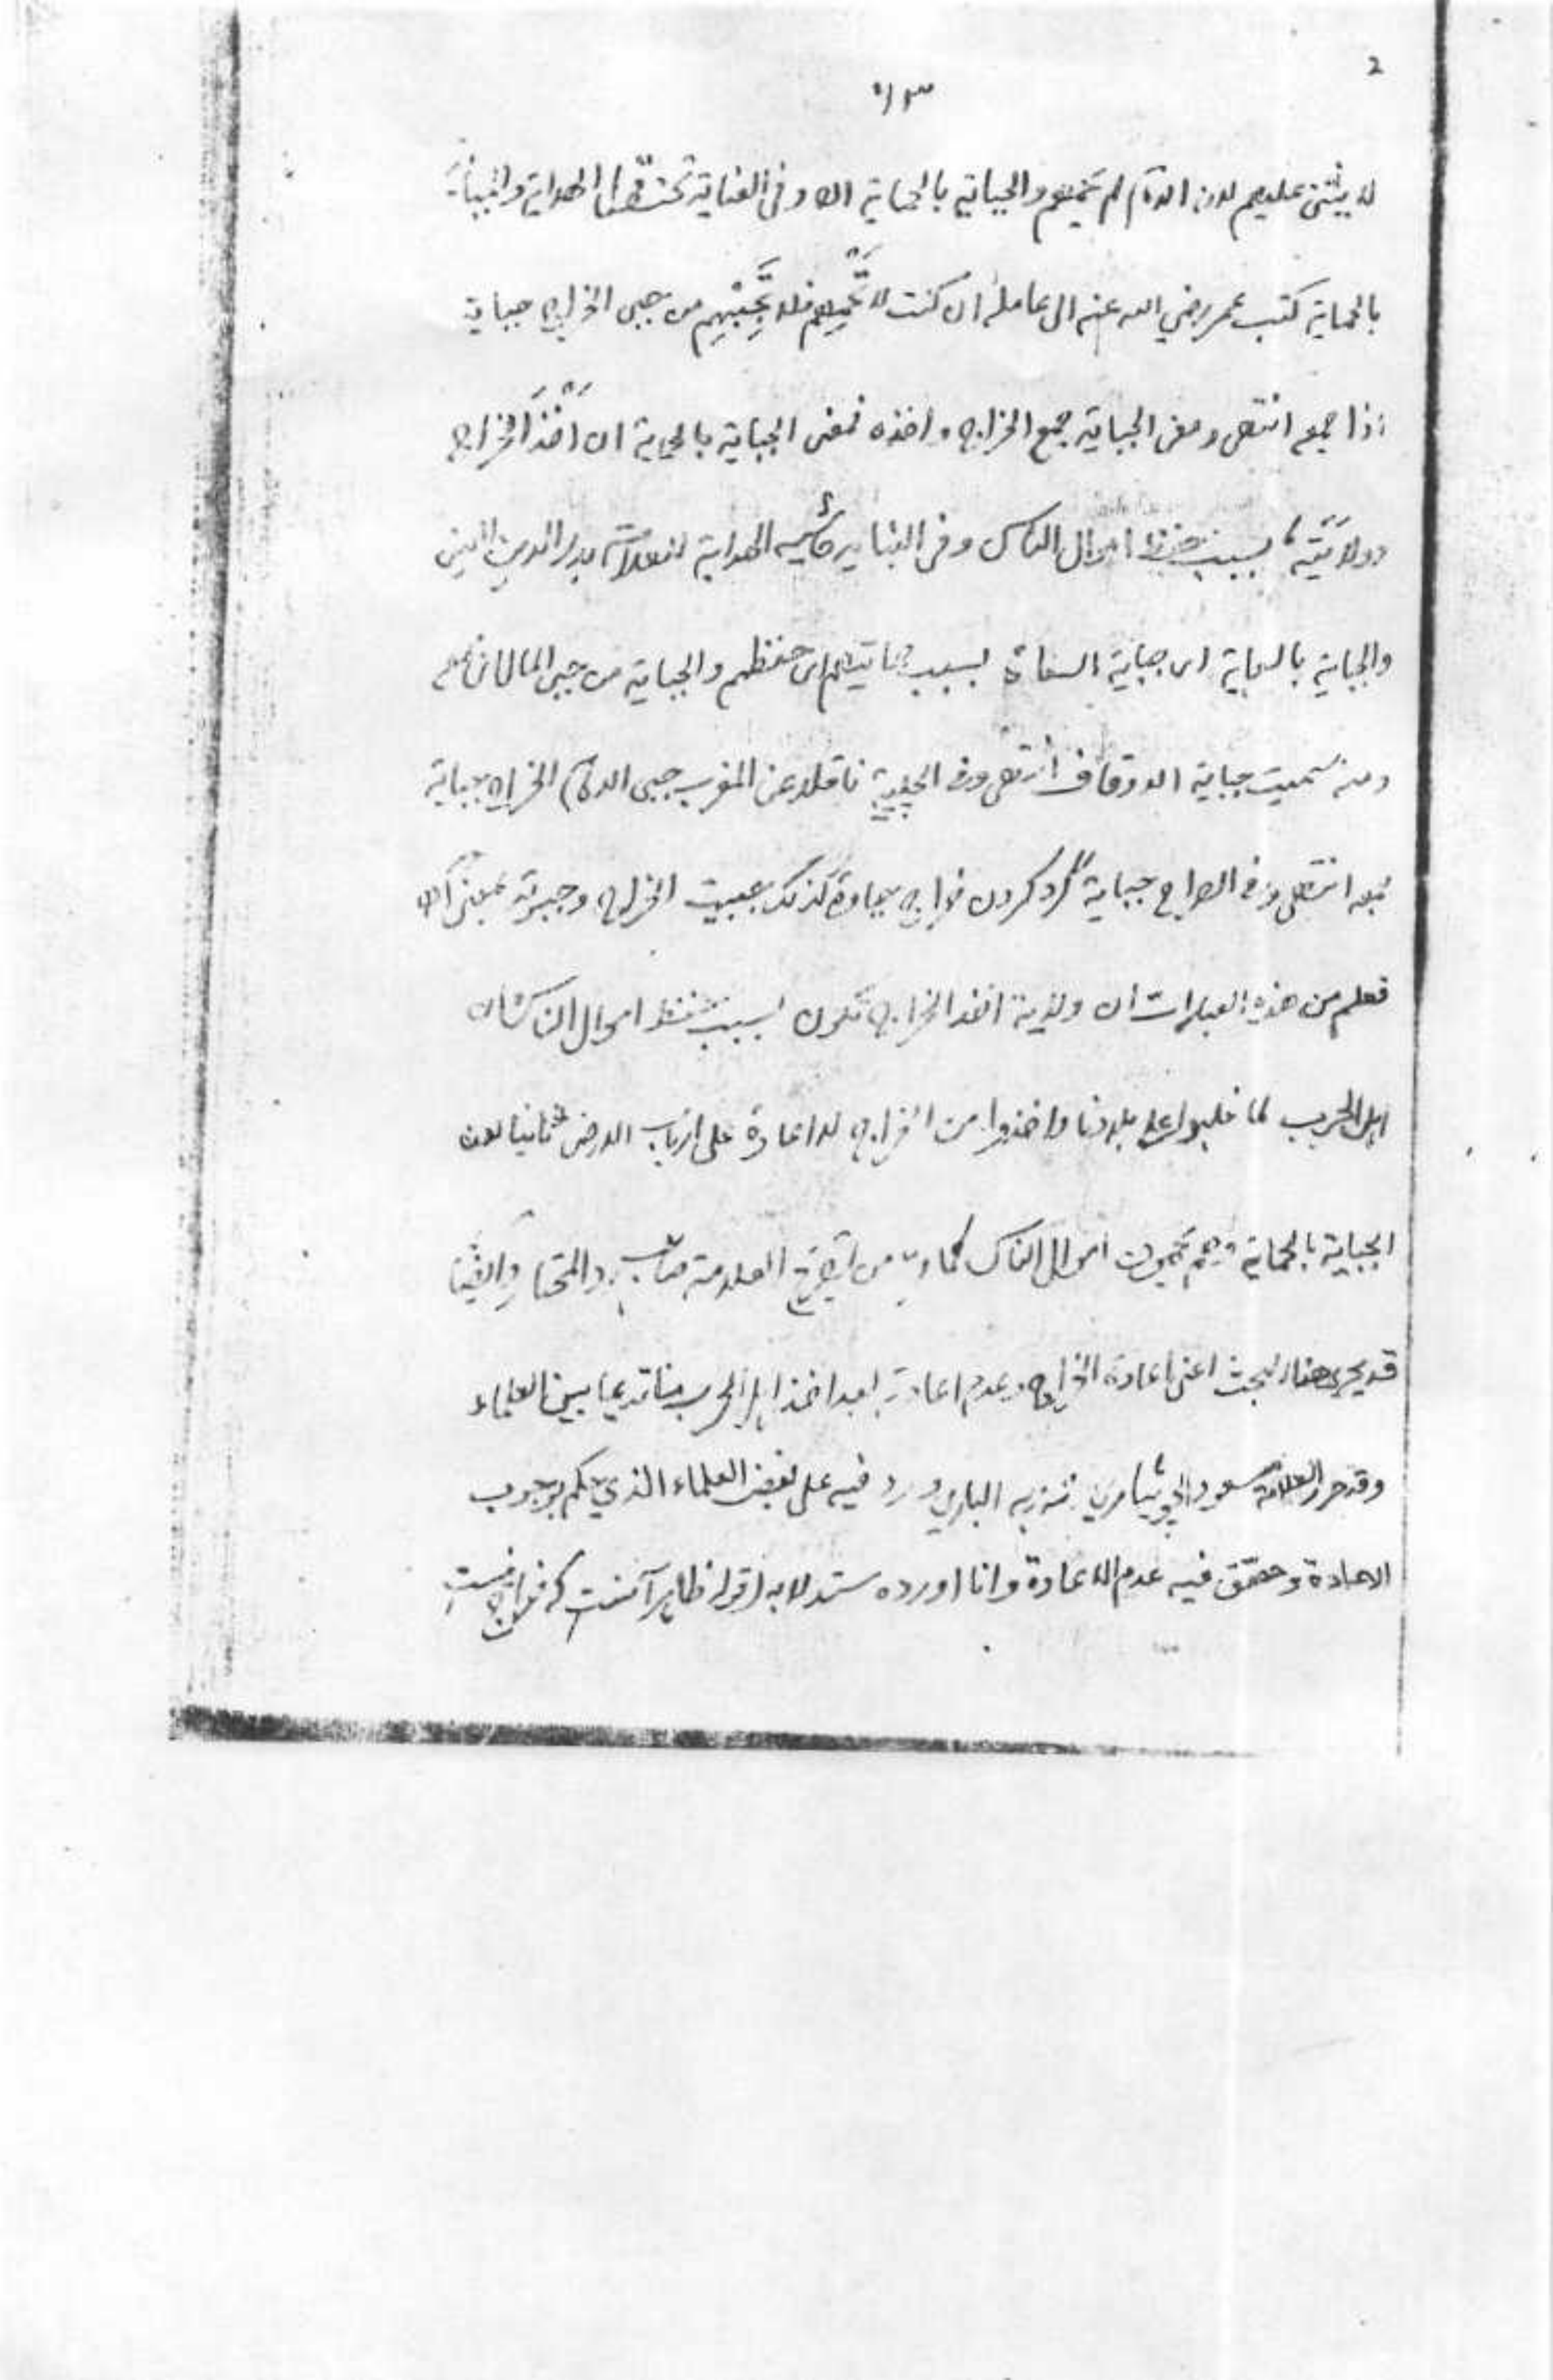 2
لا يثنى عليهم لان الامام لم يحمهم والجباية بالحماية الا وفى العناية تحت قول الهداية والجباية
بالحماية كتب عمر رضي الله عنه الى عامله ان كنت لا تحميهم فلا تجبهم من جبى الخراج جباية
اذا جمعه انتهى ومعنى الجباية جمع الخراج واخذه فمعنى الجباية بالحماية ان اخذ الخراج
وولايته بسبب حفظ اموال الناس وفى البنايه حاشيه الهداية للعلامة بدر الدين العينى
والجباية بالحماية اى جباية السعاة بسبب حمايتهم اى حفظهم والجباية من جبى المال اذا جمعه
ومنه سميت جباية الاوقاف انتهى وفى ناقلا عن المغرب جبى الامام الخراج جباية
جمعه انتهى وفى الصراح جباية گرد كردن خراج جباوة كذلك جبيت الخراج وجبوته بمعنى
فعلم من هذه العبارات ان ولاية اخذ الخراج تكون بسبب حفظ اموال الناس
اهل الحرب لما غلبوا على بلادنا واخذوا من الخراج لا اعادة على ارباب الارض ثانيا لان
الجباية بالحماية وهم يحمون اموال الناس كما من تصريح العلامة صاحب رد المحتار وايضا
قد يجرى هذا البحث اعنى اعادة الخراج وعدم اعادته بعد اخذ اهل الحرب قديما بين العلماء
وقد حرر العلامة مسعود فيه على بعض العلماء الذي يحكم بوجوب
الاعادة وحقق فيه عدم الاعادة وانا اورده مستدلا به اقول ظاهر آنست كه